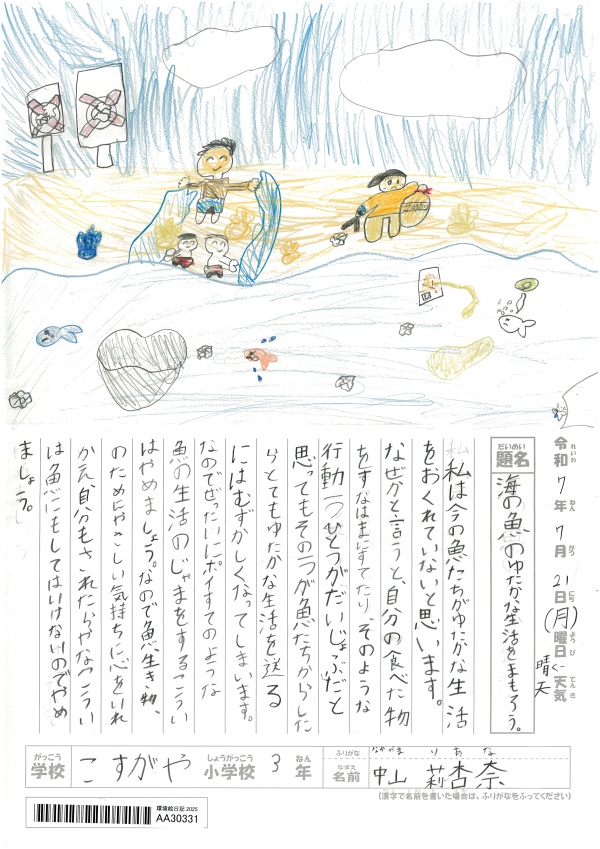 令和7年7月21日(月)曜日 天気 晴天
れいわ ねん がつ にち ようび てんき
だいめい
題名 海の魚のゆたかな生活をまもろう。
私は今の魚たちがゆたかな生活
をおくれていないと思います。
なぜかと言うと、自分の食べた物
をすなはまにすてたり、そのような
行動一つひとつがだいじょぶだと
思ってもその一つが魚たちからした
らとてもゆたかな生活を送る
にはむずかしくなってしまいます。
なのでぜったいにポイすてのような
魚の生活のじゃまをするこうい
はやめましょう。なので魚、生き物、
のためにやさしい気持ちに心をいれ
かえ、自分もされたらいやなこうい
は魚にもしてはいけないのでやめ
ましょう。
がっこう
学校 こすがや
しょうがっこう
小学校 3年
ねん
ふりがな なかやま りあな
なまえ
名前 中山 莉杏奈
(漢字で名前を書いた場合は、ふりがなをふってください)
環境絵日記 2025
AA30331